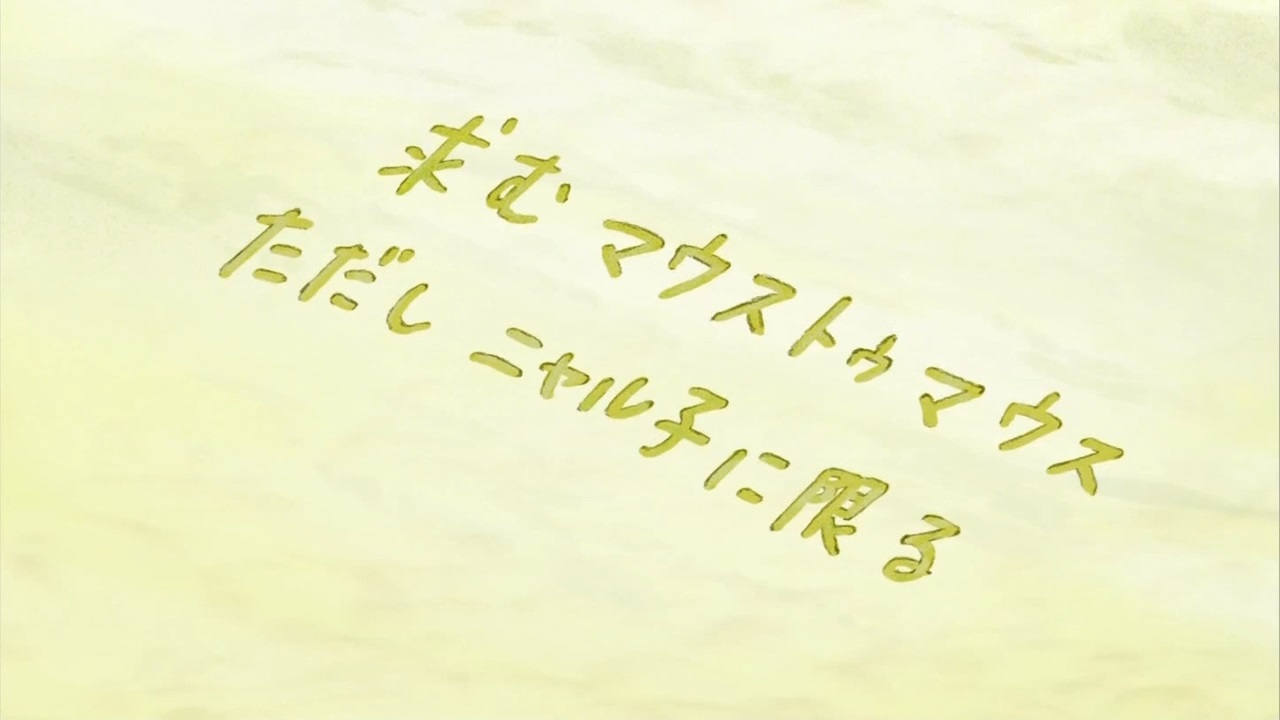 求む マウストゥマウス
ただし ニャル子に限る